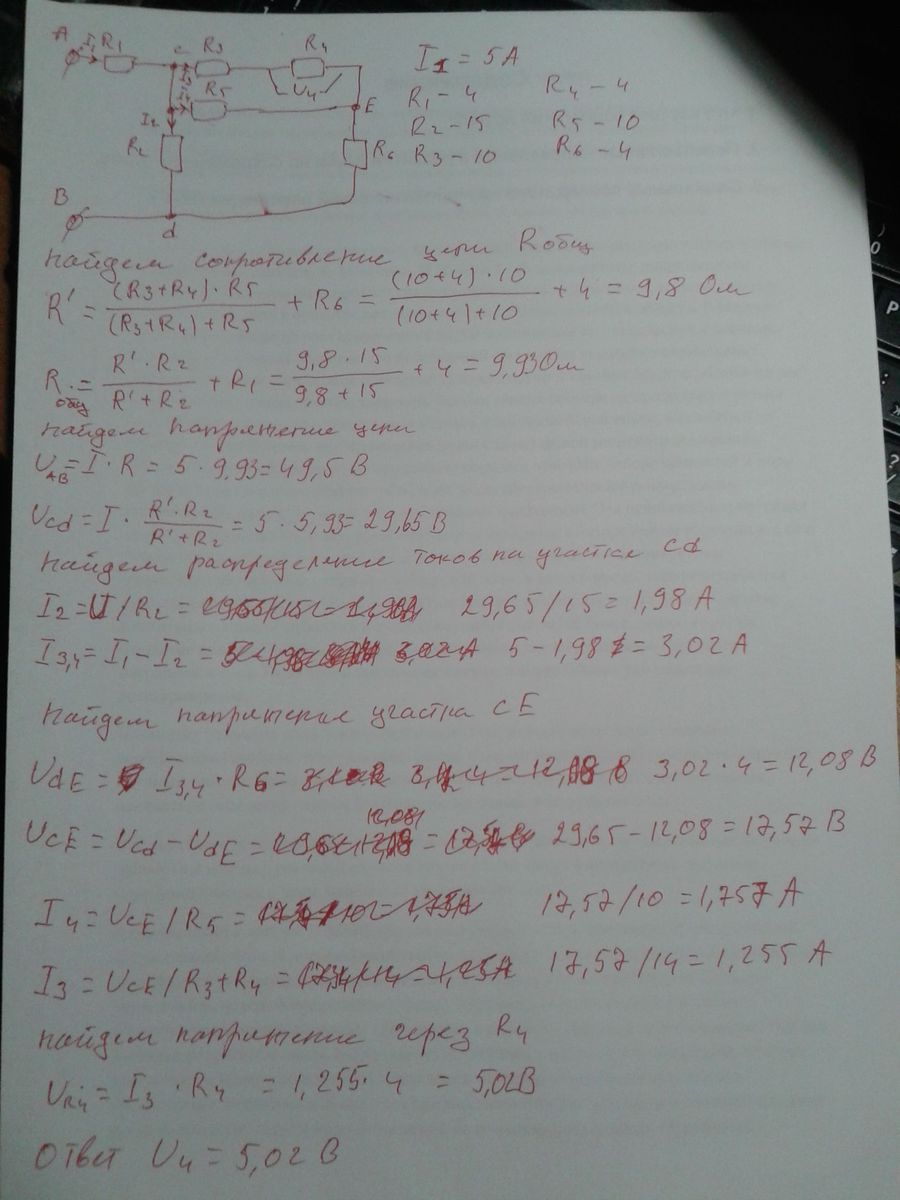 A I₁ R₁ c R₃ R₄ I₁ = 5A
I₃ U₄ R₁ – 4 R₄ – 4
I₄ R₅ E R₂ – 15 R₅ – 10
I₂ R₂ R₆ R₃ – 10 R₆ – 4
B
d
Найдем сопротивление цепи Rобщ
R' = (R₃+R₄)·R₅ / (R₃+R₄)+R₅ + R₆ = (10+4)·10 / (10+4)+10 + 4 = 9,8 Ом
Rобщ = R'·R₂ / R'+R₂ + R₁ = 9,8·15 / 9,8+15 + 4 = 9,93 Ом
Найдем напряжение цепи
UAB = I·R = 5·9,93 = 49,5 В
Ucd = I · R'·R₂ / R'+R₂ = 5·5,93 = 29,65 В
Найдем распределение токов на участке cd
I₂ = U/R₂ = 29,65/15 = 1,98 А
I₃,₄ = I₁ – I₂ = 5 – 1,98 = 3,02 А
Найдем напряжение участка cE
UdE = I₃,₄·R6 = 3,02·4 = 12,08 В
12,08
UcE = Ucd – UdE = 29,65 – 12,08 = 17,57 В
I₄ = UcE/R₅ = 17,57/10 = 1,757 А
I₃ = UcE/R₃+R₄ = 17,57/14 = 1,255 А
Найдем напряжение через R₄
UR₄ = I₃·R₄ = 1,255·4 = 5,02 В
Ответ U₄ = 5,02 В